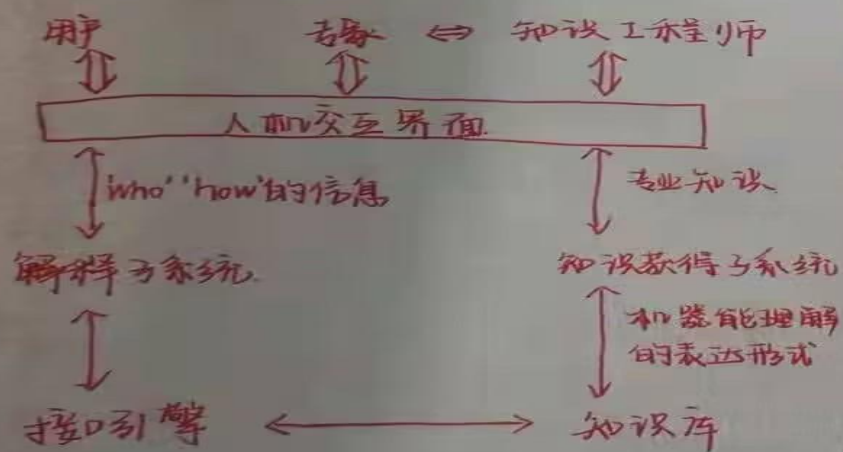 用户 专家 ⇔ 知识工程师
人机交互界面
"who""how"的信息 专业知识
解释子系统 知识获得子系统
机器能理解
的表达形式
接口引擎 知识库